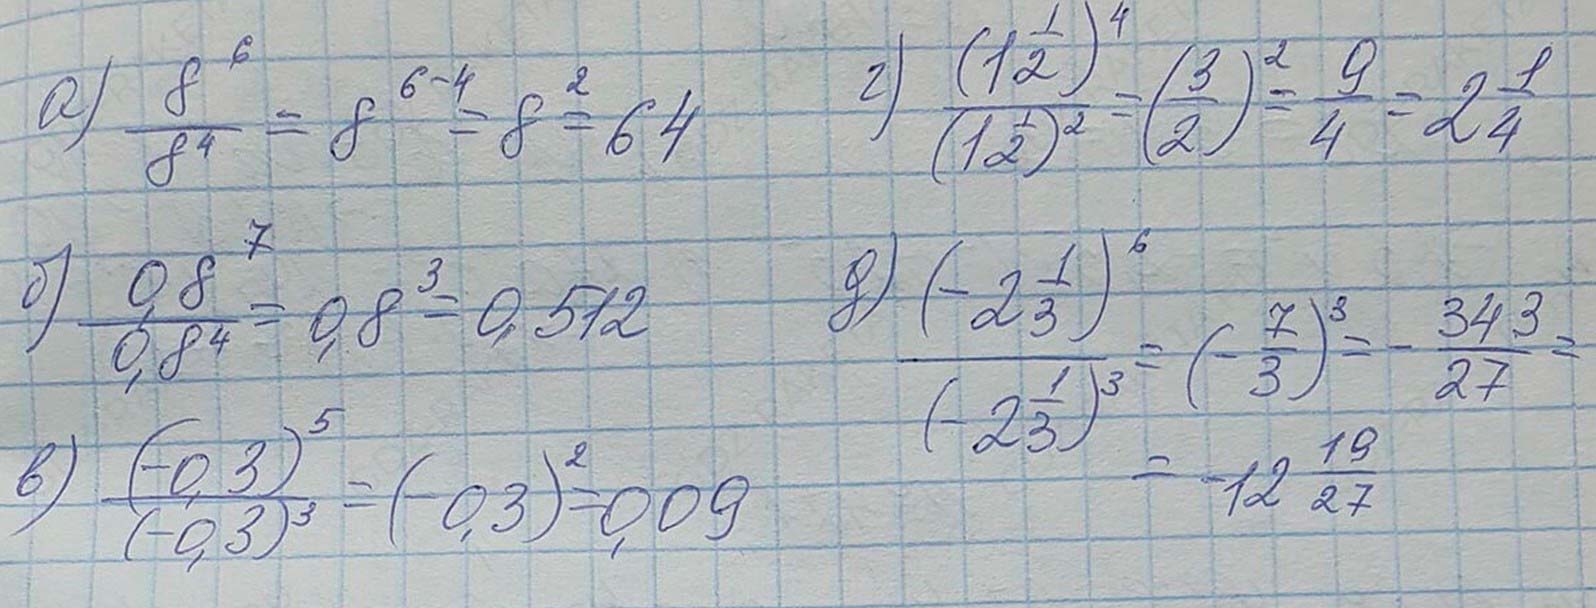 а) 8^6/8^4 = 8^(6-4) = 8^2 = 64
б) 0,8^7/0,8^4 = 0,8^3 = 0,512
в) (-0,3)^5/(-0,3)^3 = (-0,3)^2 = 0,09
г) (1 1/2)^4/(1 1/2)^2 = (3/2)^2 = 9/4 = 2 1/4
д) (-2 1/3)^6/(-2 1/3)^3 = (-7/3)^3 = -343/27 =
= -12 19/27